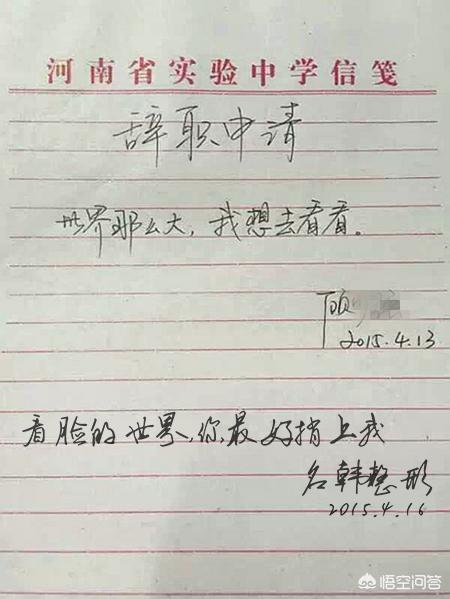 河南省实验中学信笺
辞职申请
世界那么大，我想去看看。
顾
2015.4.13
看脸的世界，你最好捎上我
名韩整形
2015.4.16
悟空问答